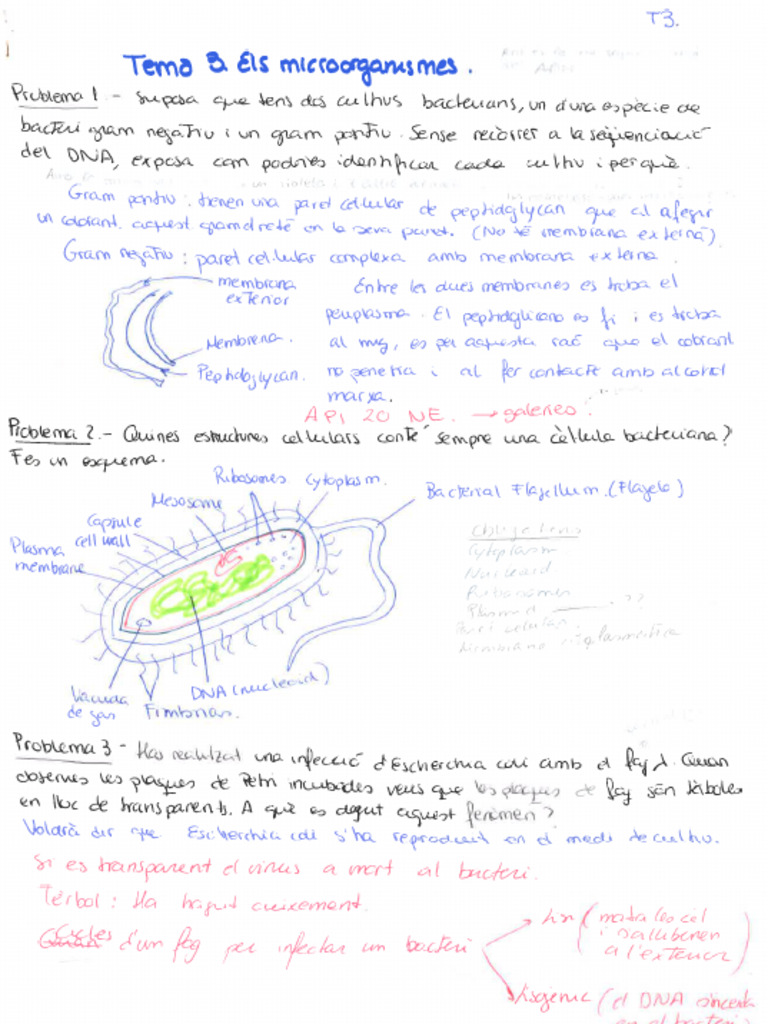 T3.
Tema 3. Els microorganismes.
Problema 1.- Suposa que tens dos cultius bacterians, un d'una espècie de
bacteri gram negatiu i un gram positiu. Sense recórrer a la seqüenciació
del DNA, exposa com podries identificar cada cultiu i perquè.
Gram positiu: tienen una paret cel·lular de peptidglycan que al afegir
un colorant aquest gram el reté en la seva paret. (No té membrana externa)
Gram negatiu: paret cel·lular complexa amb membrana externa.
membrana
exterior
Membrana.
Peptidoglycan.
Entre les dues membranes es troba el
periplasma. El peptidglicano es fi i es troba
al mig, es per aquesta raó que el colorant
no penetra i al fer contacte amb alcohol
marxa.
API 20 NE. → galeries.
Problema 2.- Quines estructures cel·lulars conté sempre una cèl·lula bacteriana?
Fes un esquema.
Ribosomes
Cytoplasm.
Mesosome
Bacterial Flagellum. (Flagelo)
Capsule
cell wall
Plasma
membrane
Cytoplasm
Nucleoid
Ribosomes
Plasmid ??
Paret celular
Membrana plasmatica
DNA (nucleoid)
Vacuola
de gas
Fimbrias.
Problema 3 - Has realitzat una infecció d'Escherchia coli amb el fag λ. Quan
observes les plaques de Petri incubades veus que les plaques de fag són tèrboles
en lloc de transparents. A què es degut aquest fenòmen?
Voldrà dir que Escherchia coli s'ha reproduit en el medi de cultiu.
Si es transparent el virus a mort al bacteri.
Tèrbol: Ha hagut creixement.
Cicles d'un fag per infectar un bacteri
Lisi (mata les cèl
i s'alliberen
a l'exterior)
Lisogenic (el DNA s'incerta
en el bacteri)